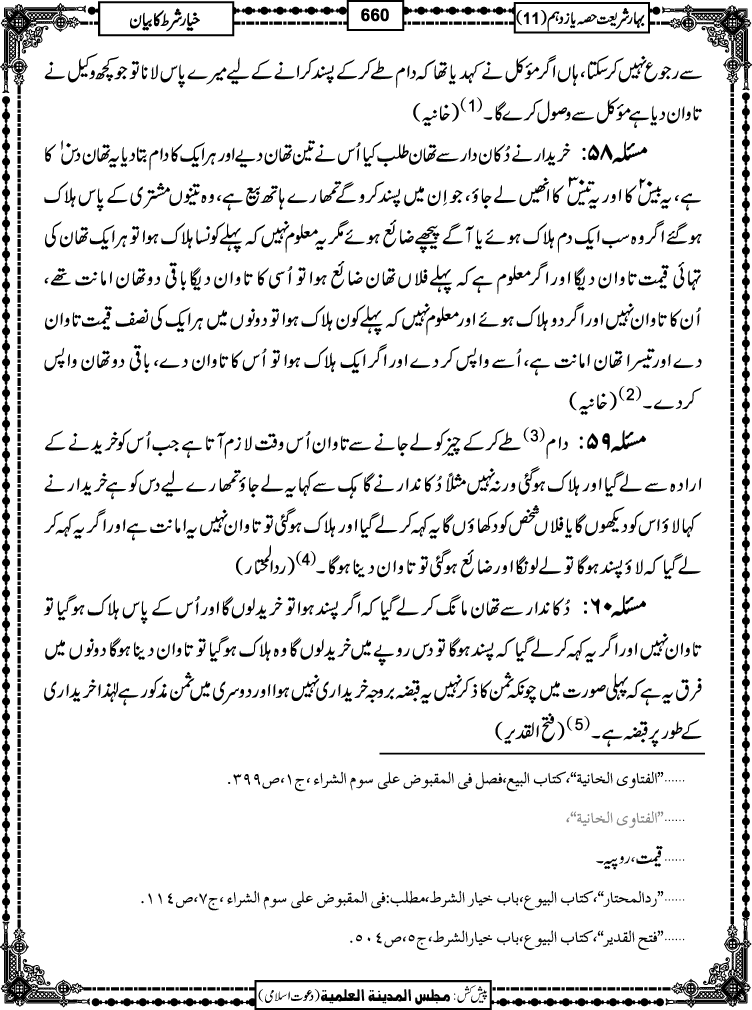 بہار شریعت حصہ یازدہم (11)
660
خیار شرط کا بیان
سے رجوع نہیں کرسکتا، ہاں اگر مؤکل نے کہدیا تھا کہ دام طے کرکے پسند کرانے کے لیے میرے پاس لانا تو جو کچھ وکیل نے
تاوان دیا ہے مؤکل سے وصول کرے گا۔(1) (خانیہ)
مسئلہ ۵۸: خریدار نے دُکان دار سے تھان طلب کیا اُس نے تین تھان دیے اور ہر ایک کا دام بتا دیا یہ تھان دس۱۰ کا
ہے، یہ بیس۲۰ کا اور یہ تیس۳۰ کا انھیں لے جاؤ، جو اِن میں پسند کرو گے تمھارے ہاتھ بیع ہے، وہ تینوں مشتری کے پاس ہلاک
ہوگئے اگر وہ سب ایک دم ہلاک ہوئے یا آگے پیچھے ضائع ہوئے مگر یہ معلوم نہیں کہ پہلے کونسا ہلاک ہوا تو ہر ایک تھان کی
تہائی قیمت تاوان دیگا اور اگر معلوم ہے کہ پہلے فلاں تھان ضائع ہوا تو اُسی کا تاوان دیگا باقی دو تھان امانت تھے،
اُن کا تاوان نہیں اور اگر دو ہلاک ہوئے اور معلوم نہیں کہ پہلے کون ہلاک ہوا تو دونوں میں ہر ایک کی نصف قیمت تاوان
دے اور تیسرا تھان امانت ہے، اُسے واپس کر دے اور اگر ایک ہلاک ہوا تو اُس کا تاوان دے، باقی دو تھان واپس
کر دے۔(2) (خانیہ)
مسئلہ ۵۹: دام(3) طے کرکے چیز کو لے جانے سے تاوان اُس وقت لازم آتا ہے جب اُس کو خریدنے کے
ارادہ سے لے گیا اور ہلاک ہوگئی ورنہ نہیں مثلاً دُکاندار نے گاہک سے کہا یہ لے جاؤ تمھارے لیے دس کو ہے خریدار نے
کہا لاؤ اس کو دیکھوں گا یا فلاں شخص کو دکھاؤں گا یہ کہہ کر لے گیا اور ہلاک ہوگئی تو تاوان نہیں یہ امانت ہے اور اگر یہ کہہ کر
لے گیا کہ لاؤ پسند ہوگا تو لے لونگا اور ضائع ہوگئی تو تاوان دینا ہوگا۔(4) (ردالمحتار)
مسئلہ ۶۰: دُکاندار سے تھان مانگ کر لے گیا کہ اگر پسند ہوا تو خرید لوں گا اور اُس کے پاس ہلاک ہوگیا تو
تاوان نہیں اور اگر یہ کہہ کر لے گیا کہ پسند ہوگا تو دس روپے میں خرید لوں گا وہ ہلاک ہوگیا تو تاوان دینا ہوگا دونوں میں
فرق یہ ہے کہ پہلی صورت میں چونکہ ثمن کا ذکر نہیں یہ قبضہ بروجہ خریداری نہیں ہوا اور دوسری میں ثمن مذکور ہے لہٰذا خریداری
کے طور پر قبضہ ہے۔(5) (فتح القدیر)
......”الفتاوی الخانیة“،کتاب البیع،فصل فی المقبوض علی سوم الشراء،ج١،ص٣٩٩.
......”الفتاوی الخانیة“،
...... قیمت، روپیہ۔
......”ردالمحتار“،کتاب البیوع،باب خیار الشرط،مطلب:فی المقبوض علی سوم الشراء،ج٧،ص١١٤.
......”فتح القدیر“،کتاب البیوع،باب خیارالشرط،ج٥،ص٥٠٤.
پیش کش: مجلس المدینة العلمیة (دعوت اسلامی)